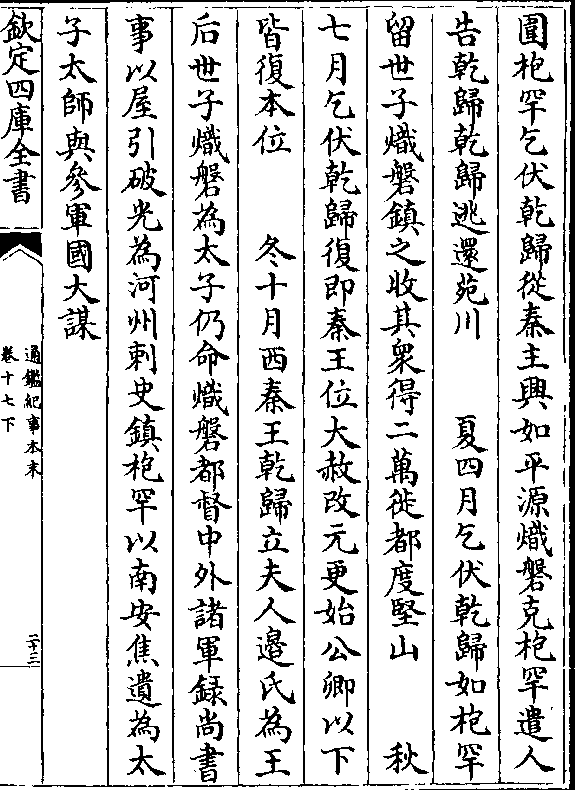 圍枹罕乞伏乾歸從秦主興如平源熾磐克枹罕遣人
告乾歸乾歸逃還苑川　夏四月乞伏乾歸如枹罕
留世子熾磐鎮之收其衆得二萬徙都度堅山　秋
七月乞伏乾歸復即秦王位大赦改元更始公卿以下
皆復本位　冬十月西秦王乾歸立夫人邉氏為王
后世子熾磐為太子仍命熾磐都督中外諸軍録尚書
事以屋引破光為河州刺史鎮枹罕以南安焦遺為太
子太師與參軍國大謀
欽定四庫全書
通鑑紀事本末
卷十七下
二十三